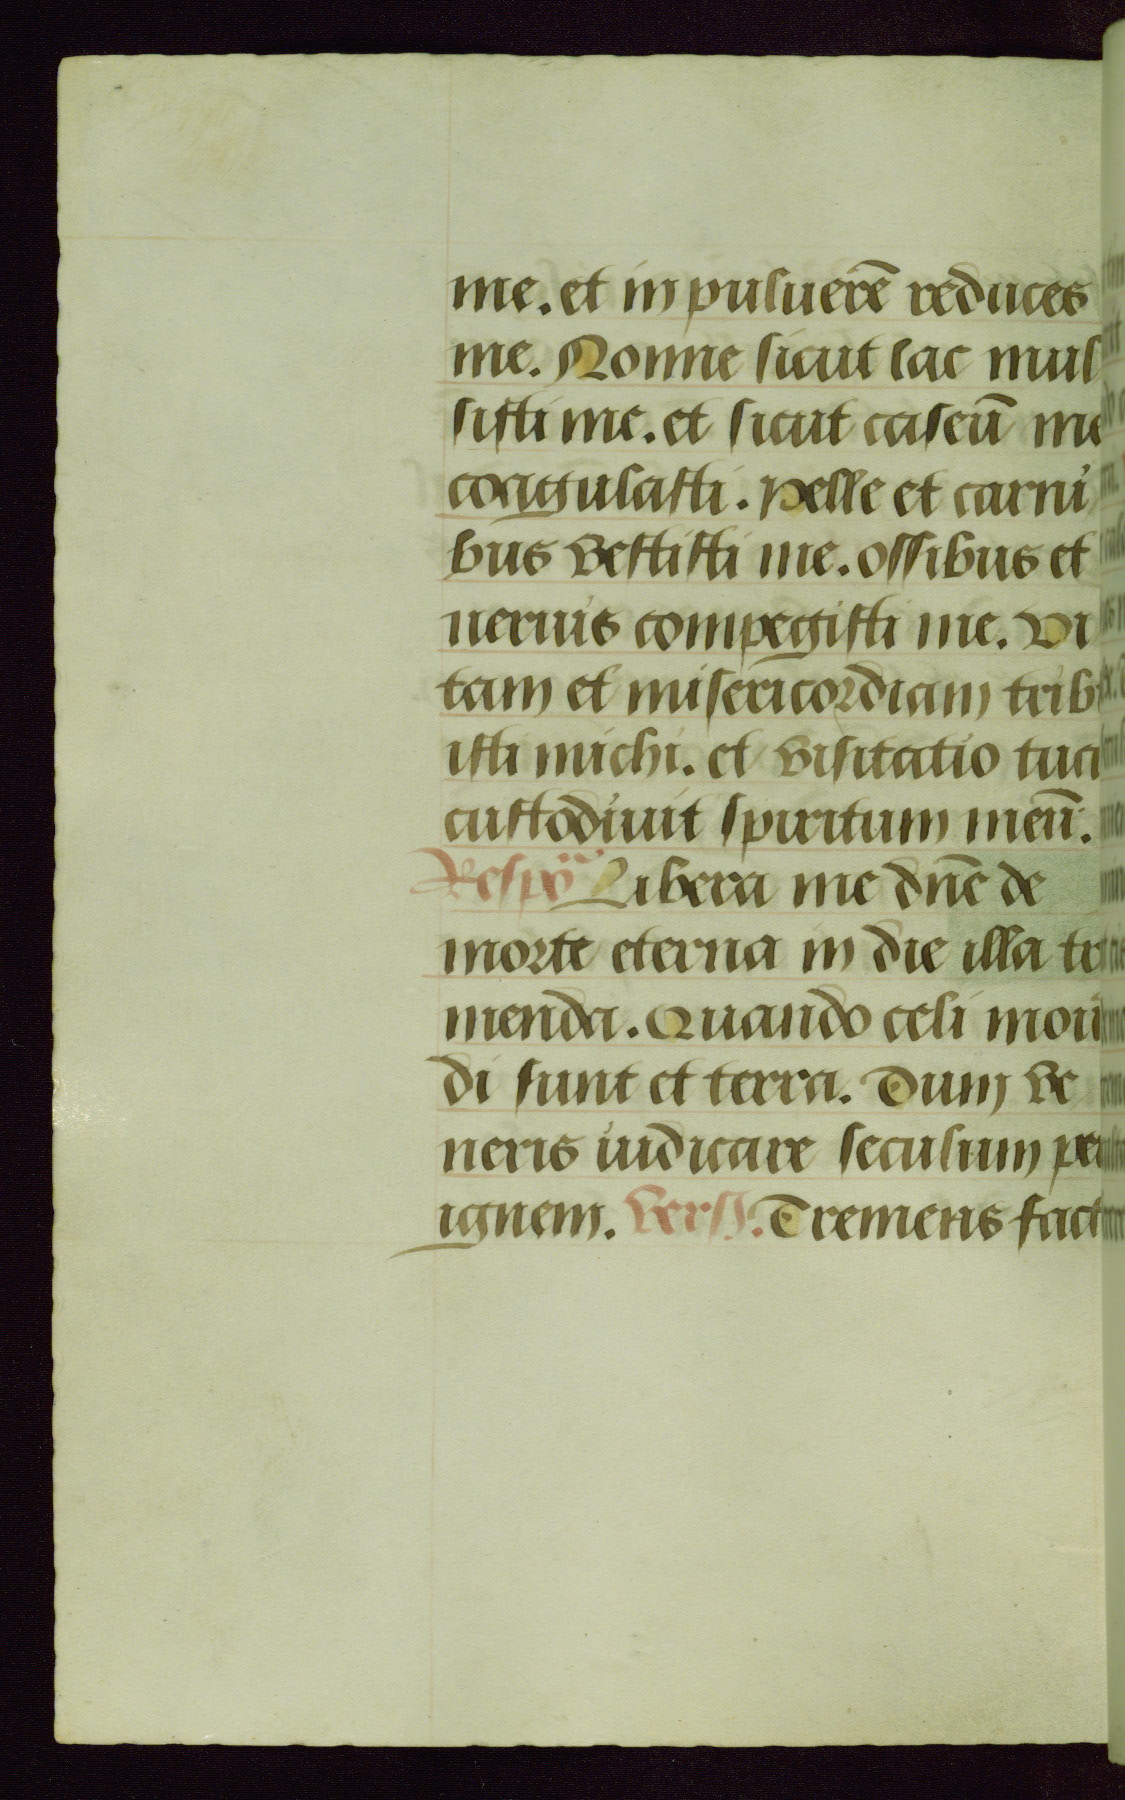 me. et in puluerē reduces
me. Nonne sicut lac mul
sisti me. et sicut caseū me
coagulasti. Pelle et carni
bus vestisti me. ossibus et
neruis compegisti me. Vi
tam et misericordiam trib
isti michi. et visitatio tua
custodiuit spiritum meū.
Respō Libera me dn̄e de
morte eterna in die illa tre
menda. Quando celi mouē
di sunt et terra. Dum ve
neris iudicare seculum per
ignem. Vers. Tremens fact